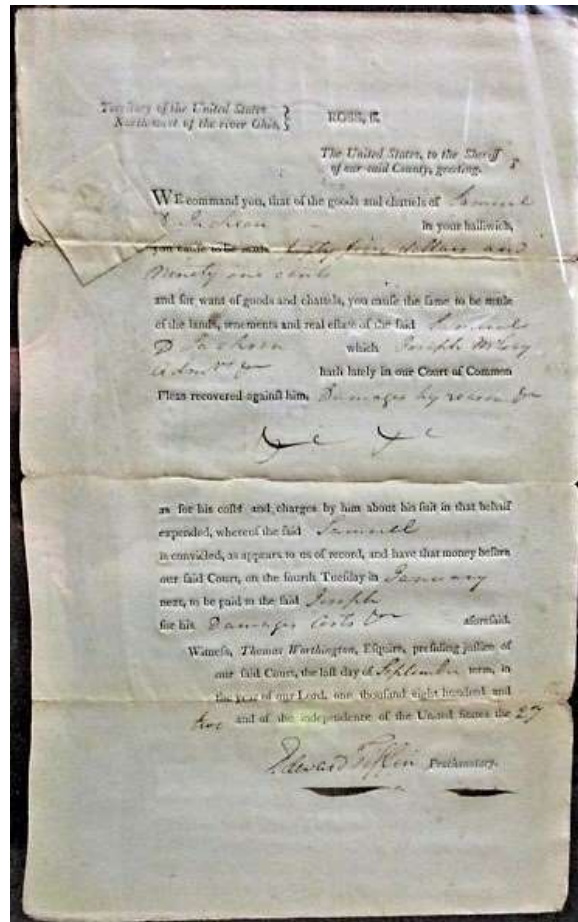 Territory of the United States
Northwest of the river Ohio,
ROSS, ſſ.
The United States, to the Sheriff
of our said County, greeting.
WE command you, that of the goods and chattels of Samuel
D Jackson in your bailiwick,
you cause to be made fifty five dollars and
ninety one cents
and for want of goods and chattels, you cause the same to be made
of the lands, tenements and real estate of the said Samuel
D Jackson which Joseph McCoy
Admr &c hath lately in our Court of Common
Pleas recovered against him, Damages by reason &c
&c &c
as for his costs and charges by him about his suit in that behalf
expended, whereof the said Samuel
is convicted, as appears to us of record, and have that money before
our said Court, on the fourth Tuesday in January
next, to be paid to the said Joseph
for his Damages Costs &c aforesaid.
Witness, Thomas Worthington, Esquire, presiding justice of
our said Court, the last day of September term, in
the year of our Lord, one thousand eight hundred and
two and of the independence of the United States the 27
Edward Tiffin Prothonotary.